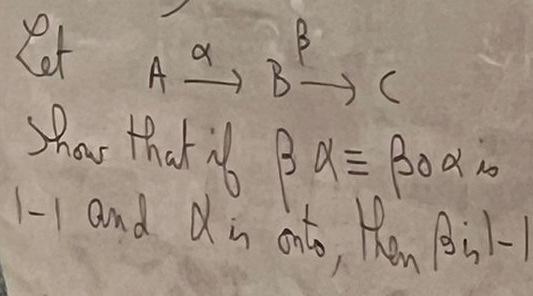 Let A α→ B β→ C
Show that if β α ≡ β o α is
1-1 and α is onto, then β is 1-1